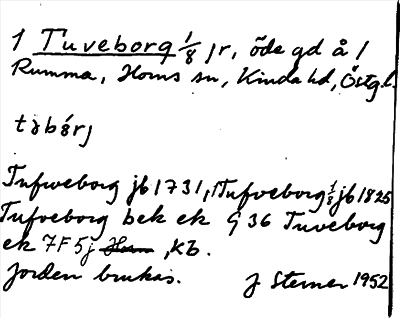 1 Tuveborg 1/8 jr, öde gd å 1
Rumma, Horns sn, Kinda hd, Östgl.
Tufweborg jb 1731, 1 Tufveborg 1/8 jb 1825
Tufveborg bek ek G 36 Tuveborg
ek 7F5j Horn, kb.
Jorden brukas. J Sterner 1952